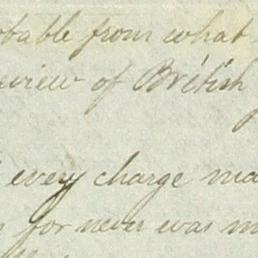 obable from what
eview of British
every charge ma
for never was m